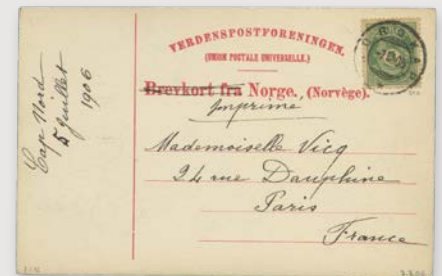 Cap Nord
5 Juillet
1906
VERDENSPOSTFORENINGEN.
(UNION POSTALE UNIVERSELLE.)
Brevkort fra Norge. (Norvège).
Imprimé
Mademoiselle Vicq
24 rue Dauphine
Paris
France